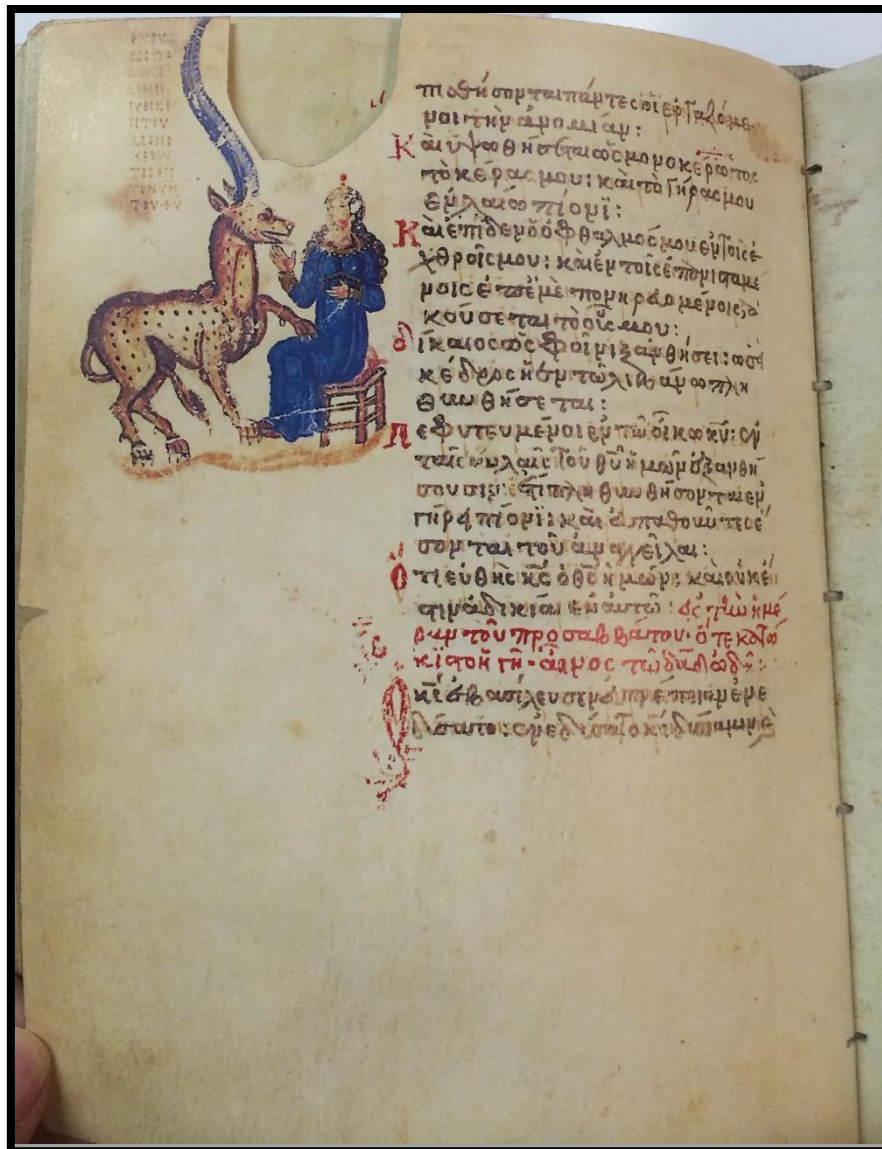 πισθήσονται πάντες οἱ ἐργαζόμε
νοι τὴν ἀνομίαν:
Καὶ ὑψωθήσεται ὡς μονοκέρωτος
τὸ κέρας μου: καὶ τὸ γῆρας μου
ἐν ἐλαίω πίονϊ:
Καὶ ἐπίδεν ὁ ὀφθαλμός μου ἐν τοῖς ἐ
χθροῖς μου: καὶ ἐν τοῖς
μένοις, ἀ
κούσεται τὸ οὖς μου:
δίκαιος ὡς φοῖνιξ ἀνθήσει: ὡσεὶ
κέδρος ἡ ἐν τῶ λιβάνω πλη
θυνθήσεται:
Πεφυτευμένοι ἐν τῶ οἴκω κυ: ἐν
ταῖς αὐλαῖς τοῦ θυ ἡμῶν ἐξανθή
σουσιν: ἔτι πληθυνθήσονται ἐν
γήρει πίονϊ: καὶ εὐπαθοῦντες ἔ
σονται τοῦ ἀναγγεῖλαι:
Ὅτι εὐθὴς κς ὁ θς ἡμῶν: καὶ οὐκ ἔ
στιν ἀδικία ἐν αὐτῶ: εἰς τὴν ἡμέ
ραν τοῦ προσαββάτου· ὅτε κατώ
κισται ἡ γῆ· αἶνος τῶ δαδ
Ὁ κς ἐβασίλευσεν εὐπρέπειαν ἐνε
δύσατο: ἐνεδύσατο κς δύναμιν